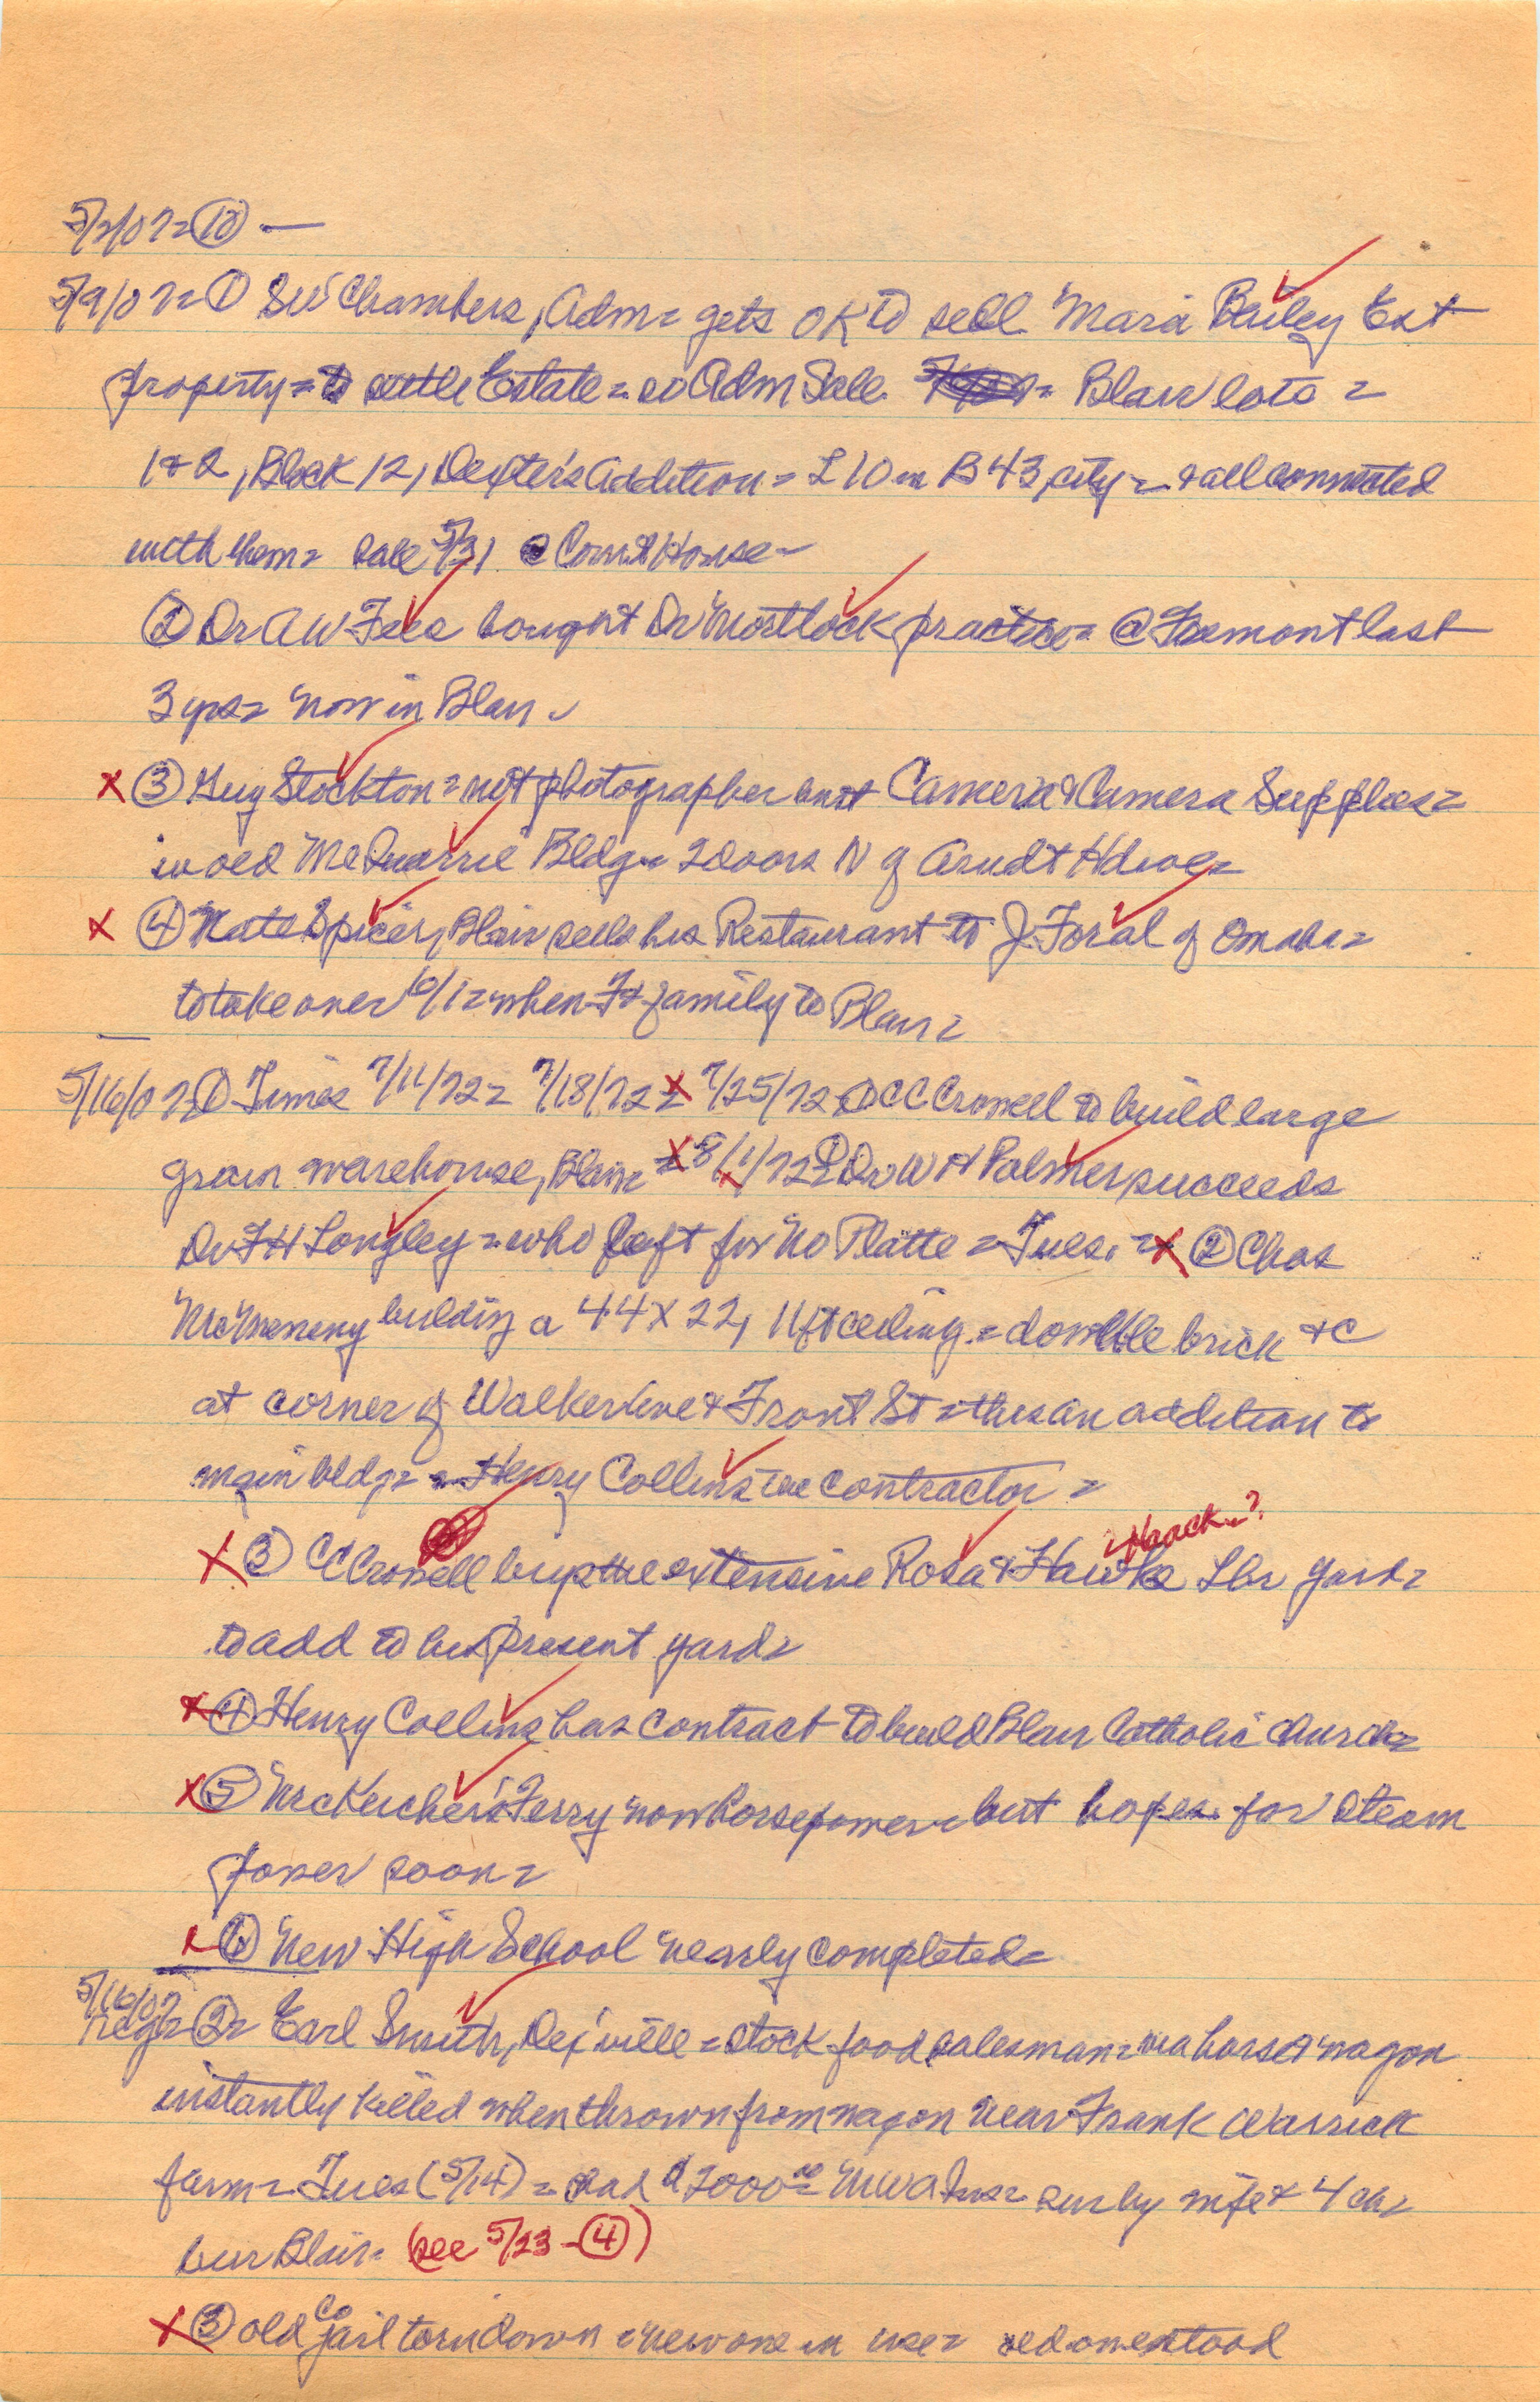 5/2/07= 10 —
5/9/07= 1 SW Chambers, Adm= gets OK to sell Maria Bailey Est
property= to settle Estate= so Adm Sale = Blair lots =
1 & 2, Block 12, Dexter's Addition = L 10 in B 43, city = & all connected
with them= sale 5/31 @ Court House-
2 Dr AW Fees bought Dr Mostlock practice= @ Fremont last
3 yrs= now in Blair
x 3 Guy Stockton= not photographer but Camera & Camera Supplies=
in old McQuarrie Bldg= 2 doors N of Arndt Hdwe=
x 4 Nate Spicer, Blair sells his Restaurant to J. Foral of Omaha=
to take over 6/1= when F & family to Blair=
5/16/07= 1 Times 7/11/72= 7/18/72= x 7/25/72 CC Crowell to build large
grain warehouse, Blair= x 8/1/72= 1 Dr W H Palmer succeeds
Dr FH Longley= who left for No Platte = Tues. = x 2 Chas
McMenemy building a 44 x 22, 11 ft ceiling = double brick &c
at corner of Walker Ave & Front St = this an addition to
main bldg= Henry Collins the contractor =
x 3 CC Crowell buys the extensive Rosa & Hawke Lbr yard= Haack..?
to add to his present yard=
x 4 Henry Collins has contract to build Blair Catholic church=
x 5 McKercher's Ferry now horsepower but hopes for steam
power soon=
x 6 New High School nearly completed=
5/16/07
reg= 2= Earl Smith, Dex'ville = stock food salesman= via horse & wagon
instantly killed when thrown from wagon near Frank Warrick
farm= Tues (5/14) = had $2000.00= MWA Ins= sur by wife & 4 ch=
bur Blair= (see 5/23 - 4)
x 3 old Co jail torn down = new one in use= old one stood